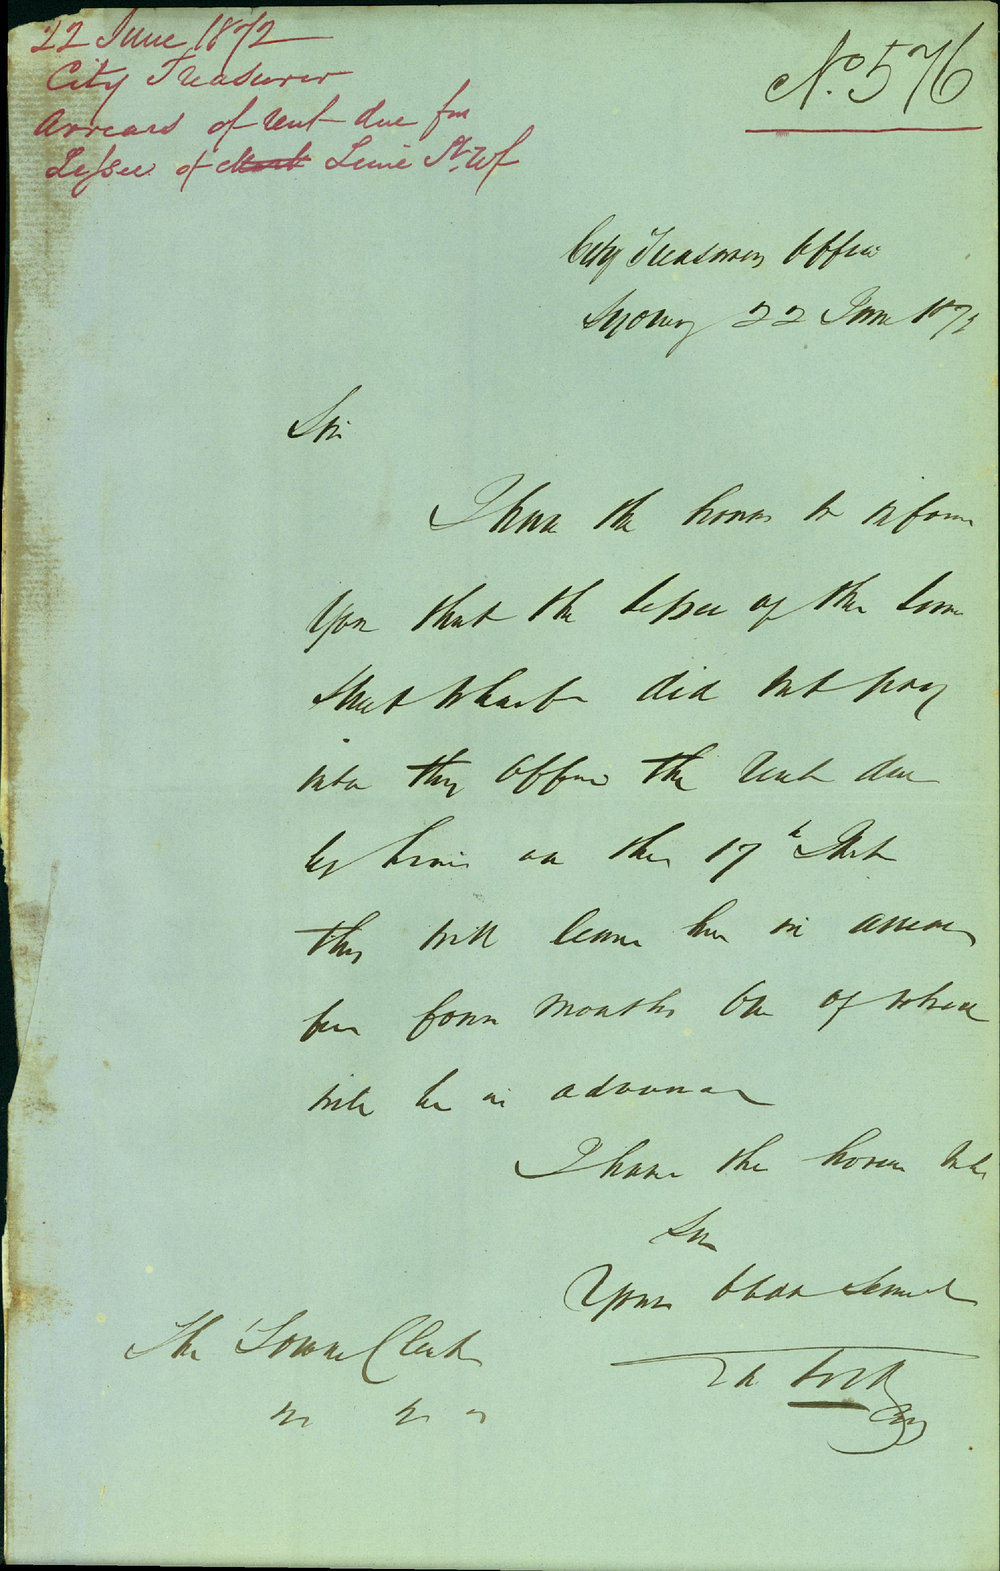 22 June 1872
City Treasurer
Arrears of rent due for
Lessee of Lime St Wf
No. 576
City Treasurers Office
Sydney 22 June 187
Sir
I have the honor to inform
you that the lessee of the Lime
Street Wharf did not pay
into this Office the rent due
by him on the 17th Inst
this will leave him in arrear
for four months one of which
will be in advance
I have the honor to be
Sir
Your Obdt Servant
The Town Clerk